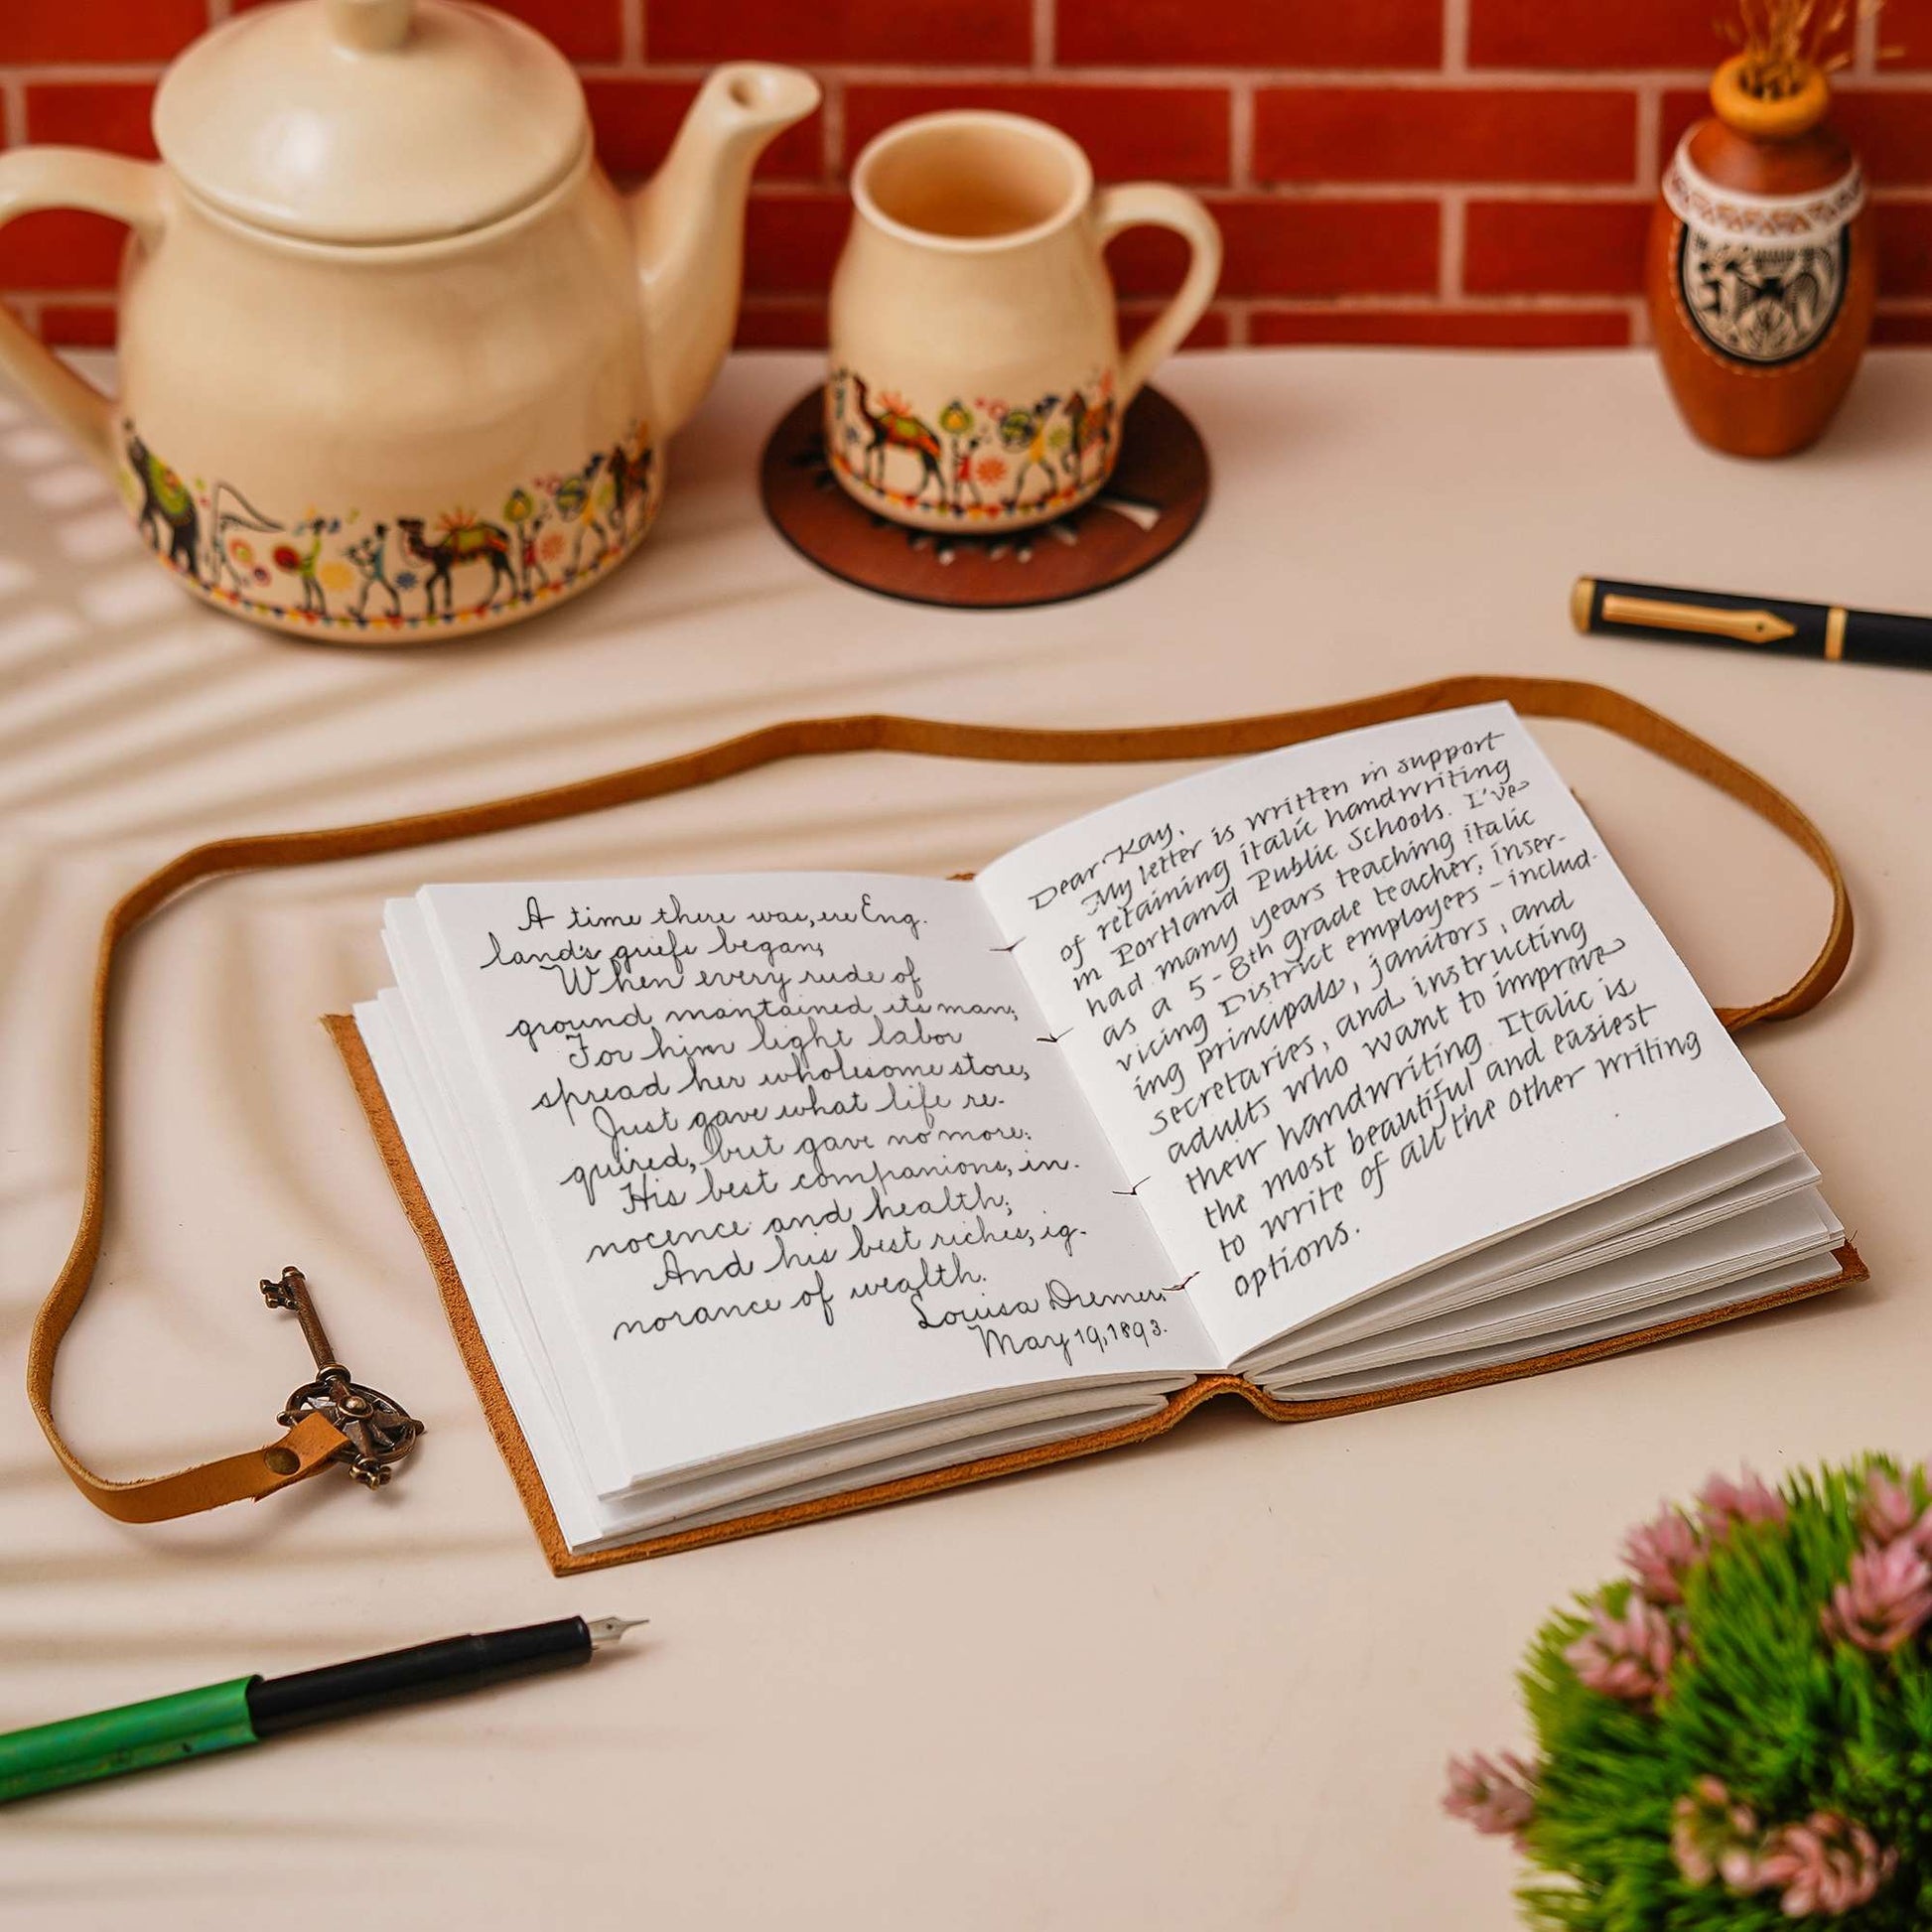 A time there was, ere Eng-
land's griefs began,
When every rude of
ground maintained its man;
For him light labor
spread her wholesome store,
Just gave what life re-
quired, but gave no more:
His best companions, in-
nocence and health;
And his best riches, ig-
norance of wealth.
Louisa
May 19, 1893.
Dear Kay,
My letter is written in support
of retaining italic handwriting
in Portland Public Schools. I've
had many years teaching italic
as a 5-8th grade teacher, inser-
vicing District employees - includ-
ing principals, janitors, and
secretaries, and instructing
adults who want to improve
their handwriting. Italic is
the most beautiful and easiest
to write of all the other writing
options.